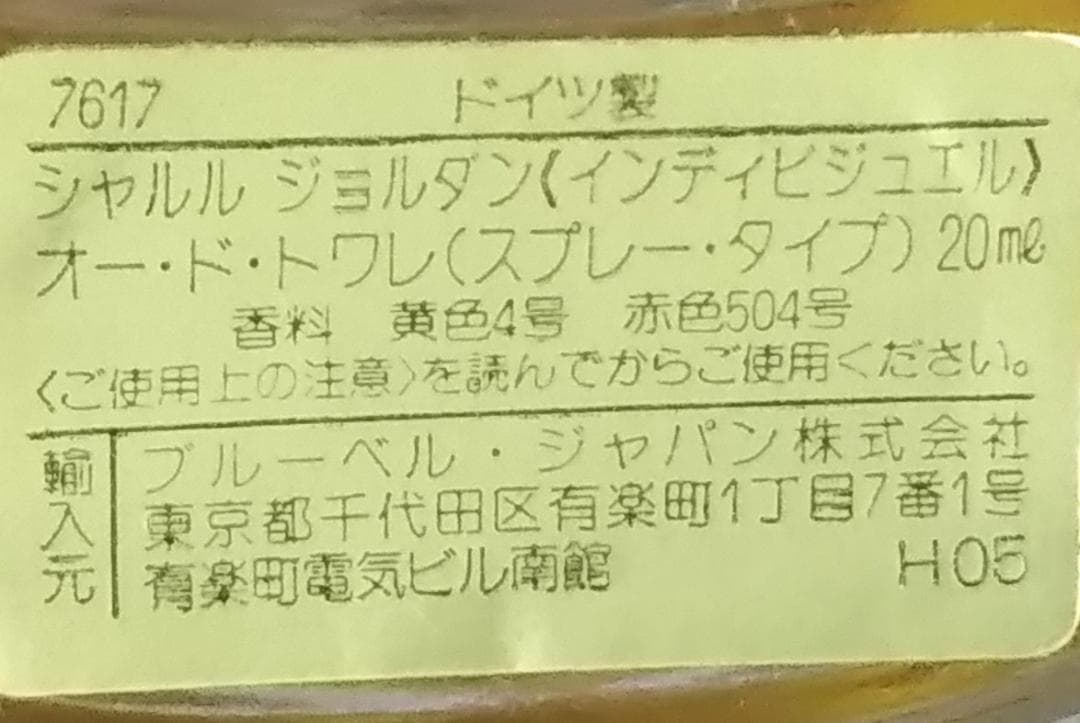 7617 ドイツ製
シャルル ジョルダン《インディビジュエル》
オー・ド・トワレ(スプレー・タイプ) 20ml
香料 黄色4号 赤色504号
〈ご使用上の注意〉を読んでからご使用ください。
輸入元
ブルーベル・ジャパン株式会社
東京都千代田区有楽町1丁目7番1号
有楽町電気ビル南館 H05